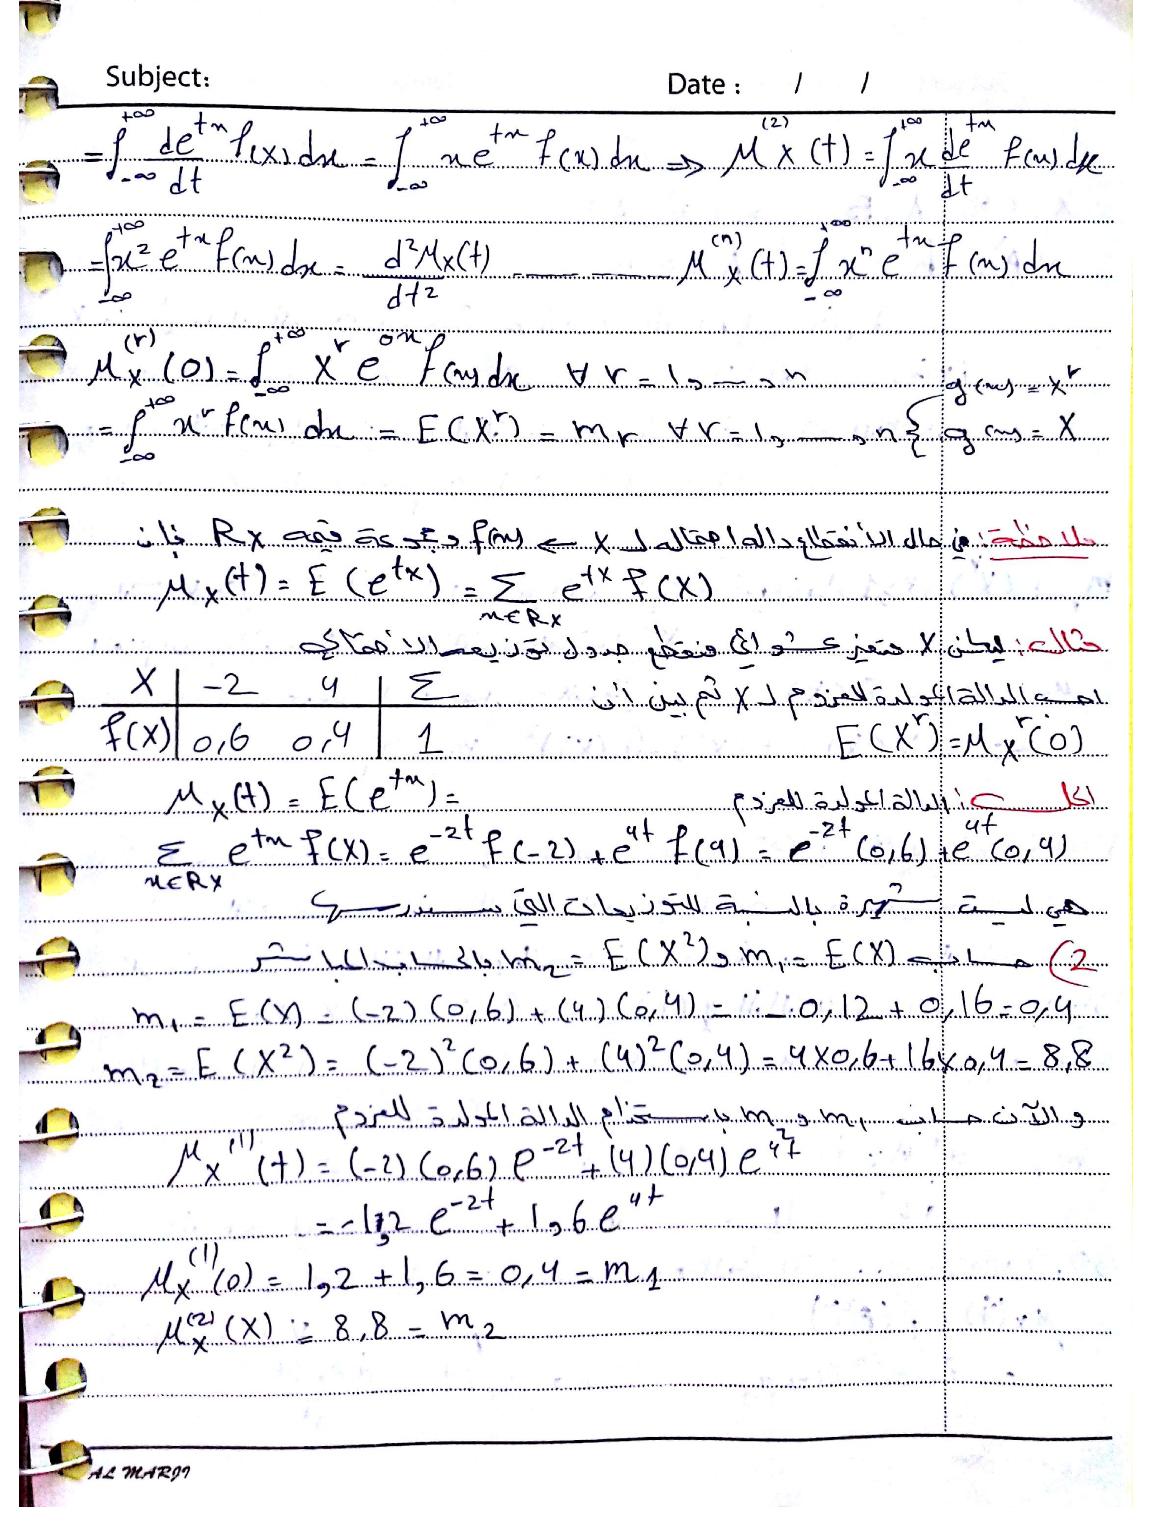 Subject: Date : / /
= ∫_{-∞}^{+∞} de^{tx}/dt f(x) dx = ∫_{-∞}^{+∞} x e^{tx} f(x) dx ⇒ M_X^{(2)}(t) = ∫_{-∞}^{+∞} x de^{tx}/dt f(x) dx
= ∫_{-∞}^{+∞} x² e^{tx} f(x) dx = d²M_X(t)/dt² ------ M_X^{(n)}(t) = ∫_{-∞}^{+∞} x^n e^{tx} f(x) dx
M_X^{(r)}(0) = ∫_{-∞}^{+∞} x^r e^{0x} f(x) dx ∀ r = 1, ..., n g(x) = x^r
= ∫_{-∞}^{+∞} x^r f(x) dx = E(X^r) = m_r ∀ r = 1, ..., n { g(x) = X
ملاحظة: في حال الانقطاع دالة احتمالية لـ X ← f(x) ومجموعة قيمه R_X فإن
M_X(t) = E(e^{tx}) = Σ_{x∈R_X} e^{tx} f(X)
مثال: ليكن X متغير عشوائي متقطع جدول توزيعه الاحتمالي
X | -2 4 | Σ
f(X) | 0,6 0,4 | 1
احسب الدالة المولدة للعزوم لـ X ثم بين أن
E(X^r) = M_X^r(0)
الحل: الدالة المولدة للعزوم M_X(t) = E(e^{tx}) =
Σ_{x∈R_X} e^{tx} f(X) = e^{-2t} f(-2) + e^{4t} f(4) = e^{-2t} (0,6) + e^{4t} (0,4)
هي ليست شهيرة بالنسبة للتوزيعات التي سندرسها
2) حساب m_1 = E(X) و m_2 = E(X²) بالحساب المباشر
m_1 = E(X) = (-2)(0,6) + (4)(0,4) = -0,12 + 0,16 = 0,4
m_2 = E(X²) = (-2)²(0,6) + (4)²(0,4) = 4×0,6 + 16×0,4 = 8,8
والآن حساب m_1 و m_2 باستخدام الدالة المولدة للعزوم
M_X^{(1)}(t) = (-2)(0,6) e^{-2t} + (4)(0,4) e^{4t}
= -1,2 e^{-2t} + 1,6 e^{4t}
M_X^{(1)}(0) = 1,2 + 1,6 = 0,4 = m_1
M_X^{(2)}(X) = 8,8 = m_2
AL MARJI